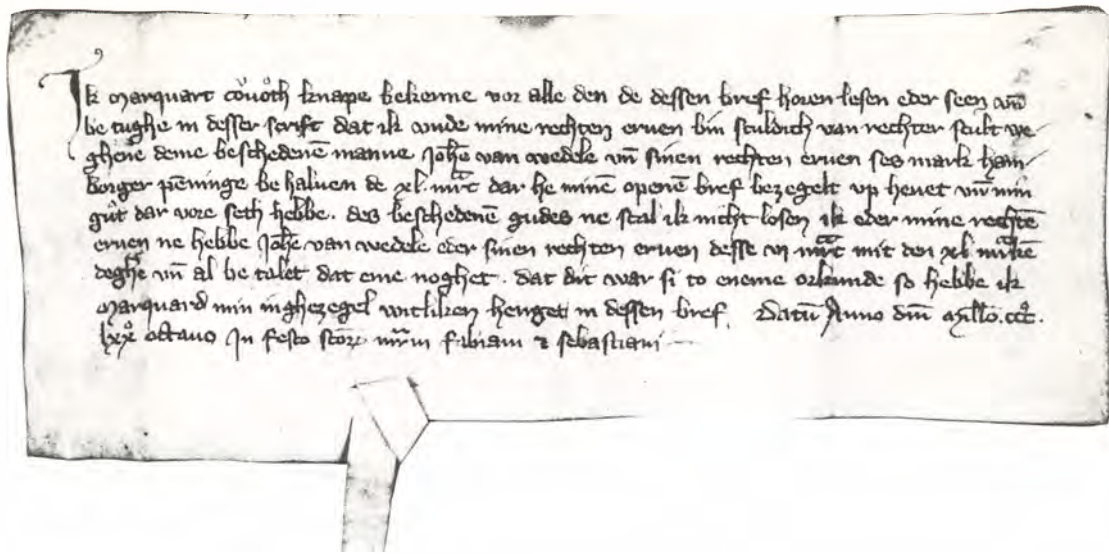 Ik marquart cůůoth knape bekenne vor alle den de dessen bref horen lesen eder seen vn̄
be tughe in desser scrift dat ik vnde mine rechten eruen bin sculdich van rechter scult we-
ghene deme beschedenē manne Joh̄e van wedele vn̄ sinen rechten eruen ses mark ham-
borger pēninge be haluen de xl. mr̄c dar he minē openē bref bezegelt vp heuet vn̄ min
gůt dar vore seth hebbe. des beschedenē gudes ne scal ik nicht losen ik eder mine rechtē
eruen ne hebbe Joh̄e van wedele eder sinen rechten eruen desse vi mr̄c mit den xl mr̄kē
degh̄e vn̄ al be talet dat eme noghet. dat dit war si to eneme orkunde so hebbe ik
marquard min inghezegel witliken henget in dessen bref. Datū Anno dm̄ Millo. ccc̊.
lxx̊ octauo In festo scōꝝ mr̄m fabiani ⁊ sebastiani